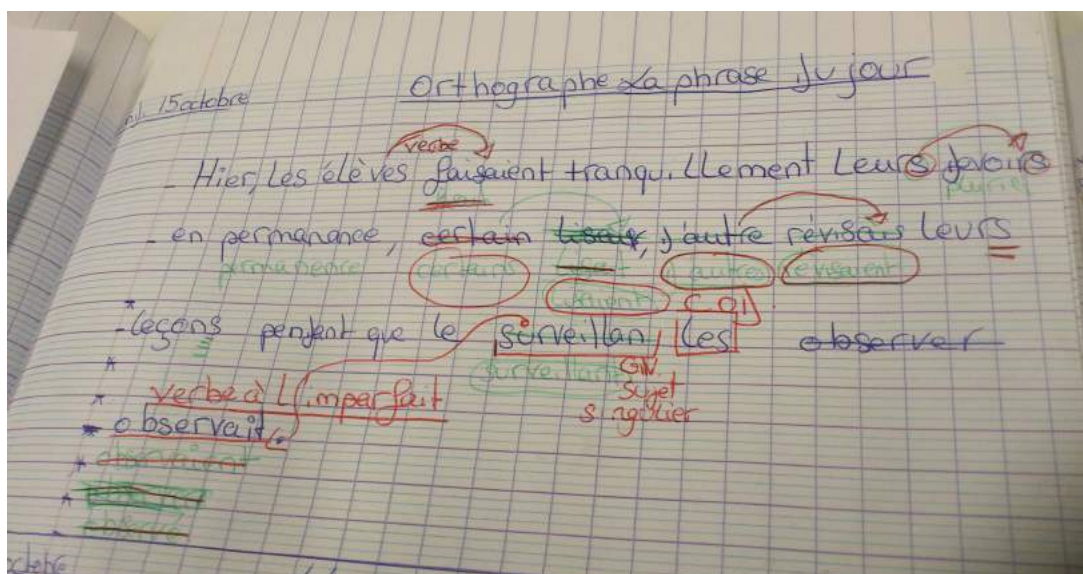 15 octobre Orthographe La phrase du jour
verbe
- Hier, Les élèves faisaient tranquillement Leurs devoirs
pluriel
- en permanance, certain lisait, d'autre révisais leurs
permanence certains lisait d'autres révisaient
lisaient C.O.D.
- leçons pendant que le surveillan, les observer
surveillant GN.
Sujet
verbe à L'imparfait singulier
observait.
observaient
observé
octobre